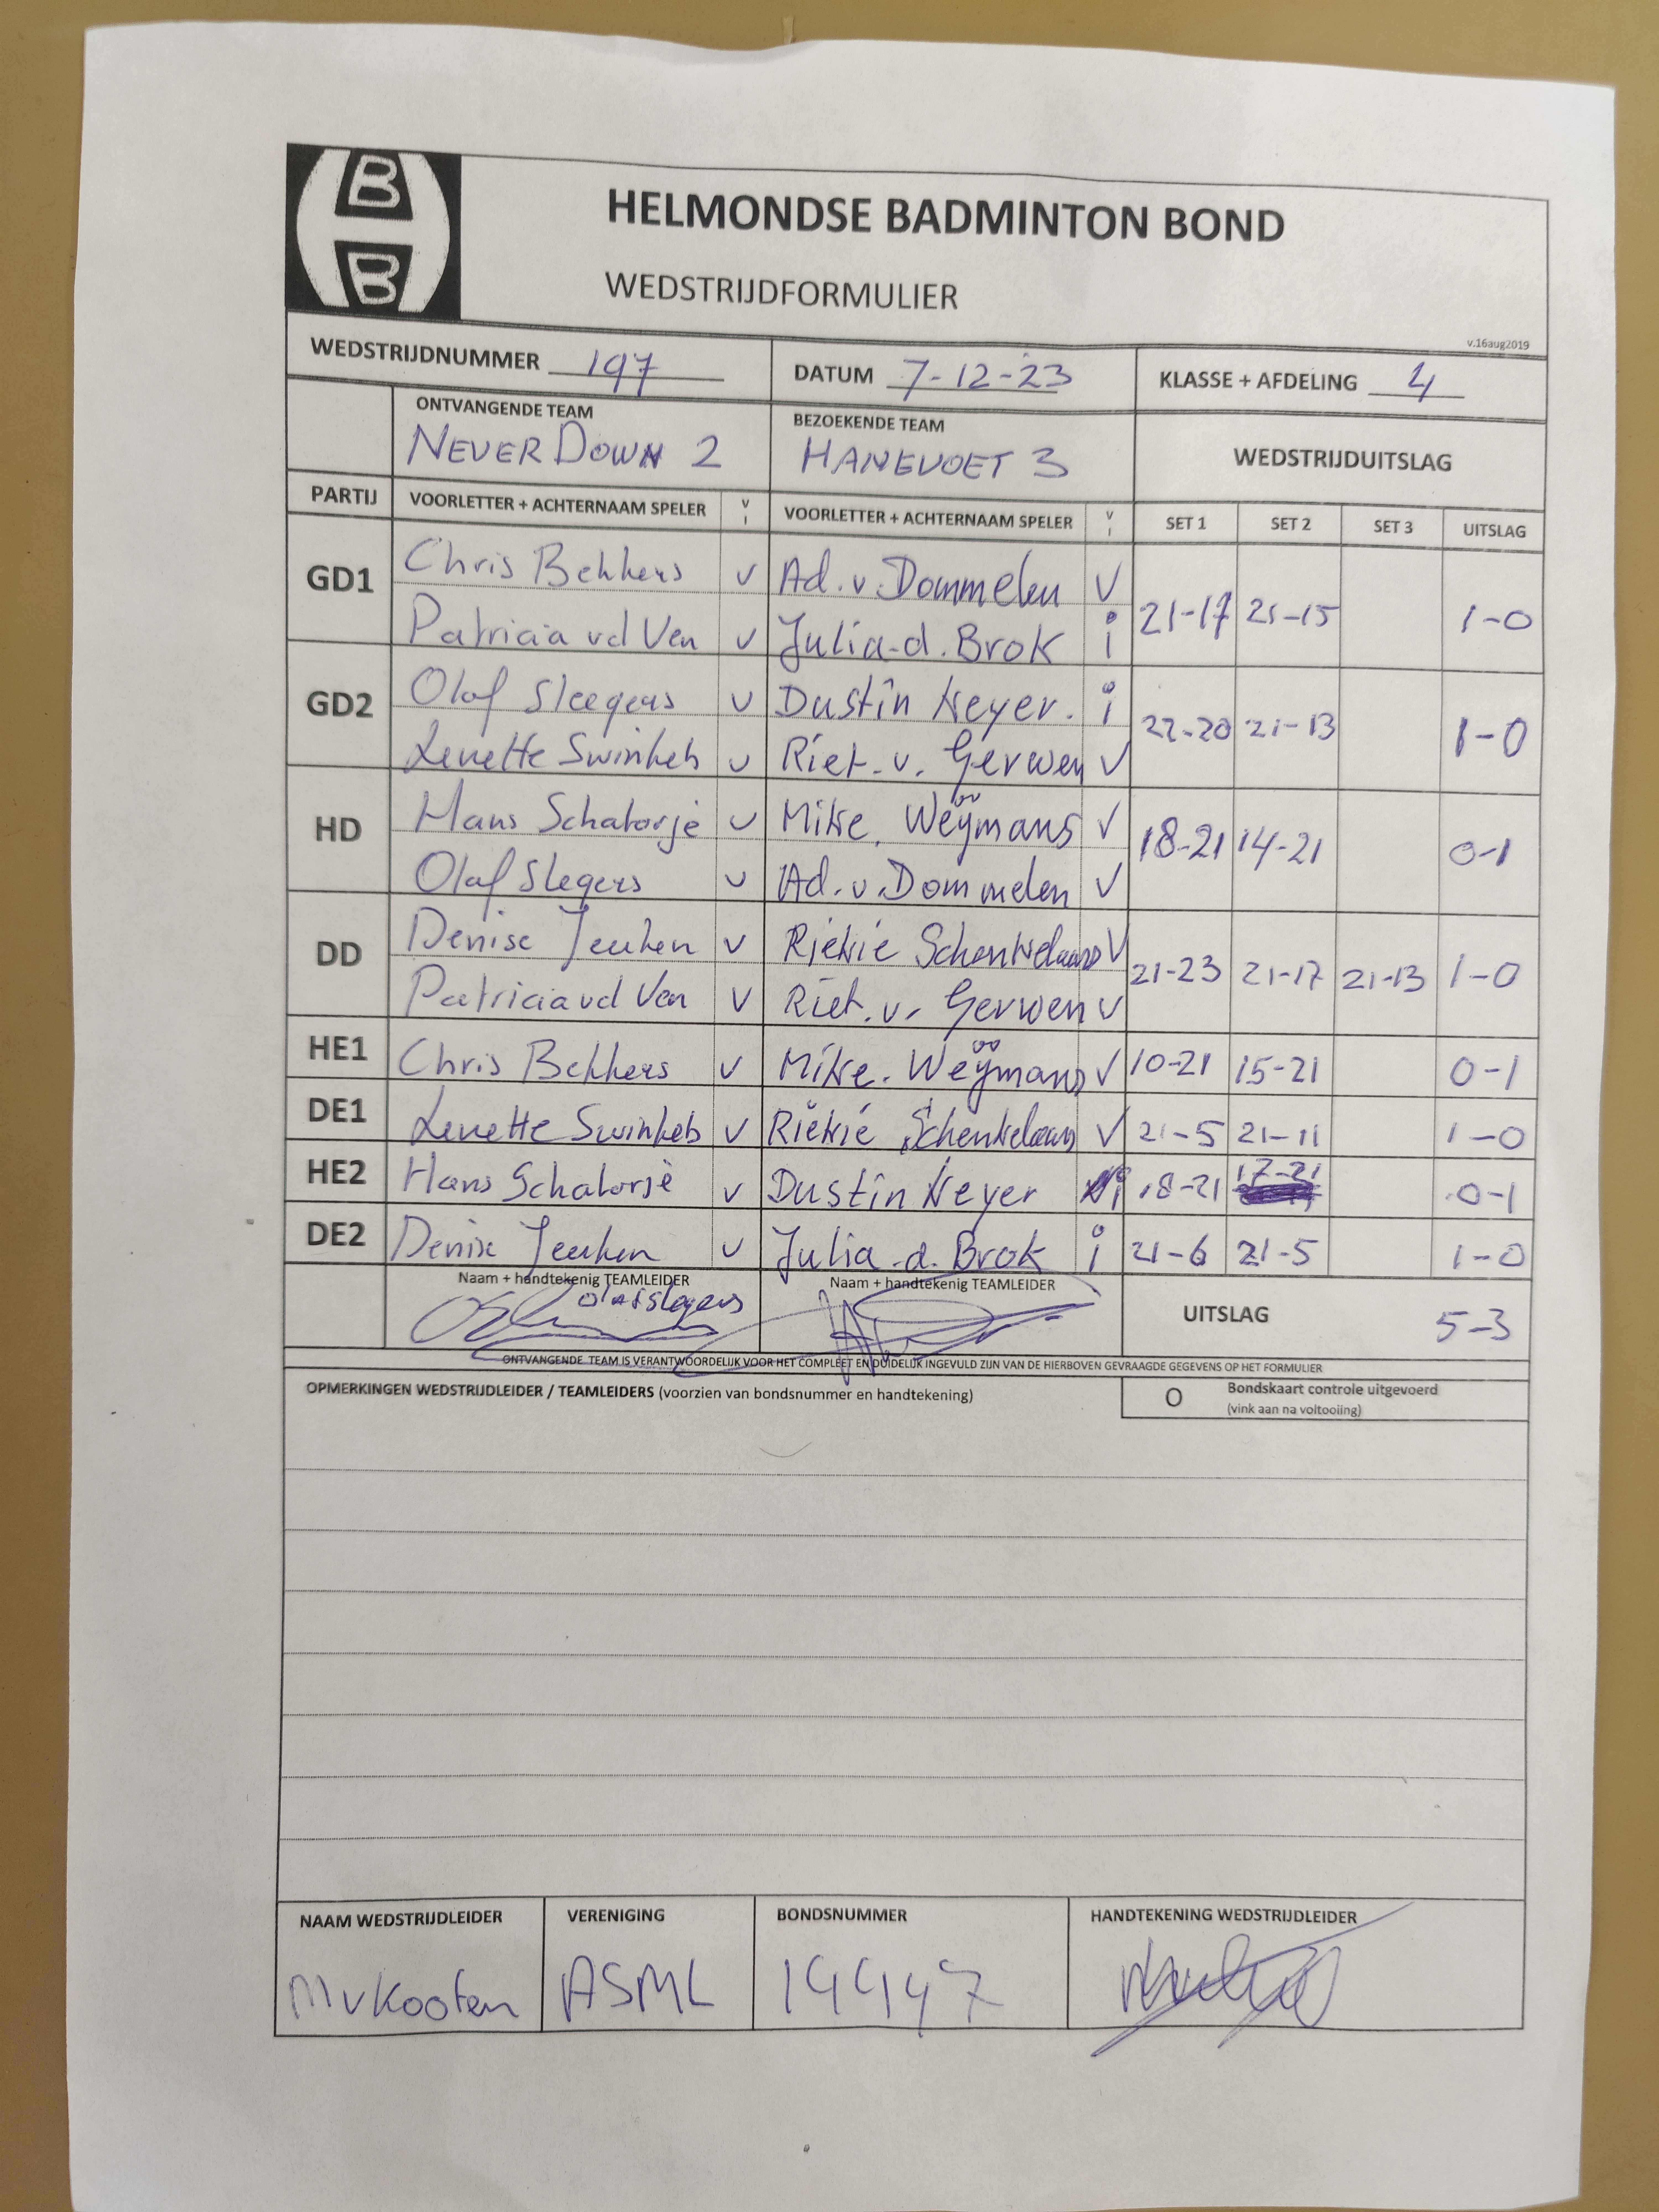 B
B
HELMONDSE BADMINTON BOND
WEDSTRIJDFORMULIER
v.16aug2019
WEDSTRIJDNUMMER 197 DATUM 7-12-23 KLASSE + AFDELING 4
ONTVANGENDE TEAM BEZOEKENDE TEAM
NEVER DOWN 2 HANEVOET 3 WEDSTRIJDUITSLAG
PARTIJ VOORLETTER + ACHTERNAAM SPELER V I VOORLETTER + ACHTERNAAM SPELER V I SET 1 SET 2 SET 3 UITSLAG
GD1 Chris Bekkers v Ad. v. Dommelen V 21-17 21-15 1-0
Patricia vd Ven v Julia d. Brok i
GD2 Olaf Sleegers v Dustin Neyer. i 22-20 21-13 1-0
Lenette Swinkels v Riet. v. Gerwen V
HD Hans Schatorjé v Mike. Weÿmans V 18-21 14-21 0-1
Olaf Slegers v Ad. v. Dommelen V
DD Denise Jeuken v Riekie Schenkelaars V 21-23 21-17 21-13 1-0
Patricia vd Ven v Riet. v. Gerwen v
HE1 Chris Bekkers v Mike. Weÿmans V 10-21 15-21 0-1
DE1 Lenette Swinkels v Riekie Schenkelaars V 21-5 21-11 1-0
HE2 Hans Schatorjé v Dustin Neyer i 18-21 17-21 0-1
DE2 Denise Jeuken v Julia d. Brok i 21-6 21-5 1-0
Naam + handtekenig TEAMLEIDER Naam + handtekenig TEAMLEIDER
Olaf Slegers UITSLAG 5-3
ONTVANGENDE TEAM IS VERANTWOORDELIJK VOOR HET COMPLEET EN DUIDELIJK INGEVULD ZIJN VAN DE HIERBOVEN GEVRAAGDE GEGEVENS OP HET FORMULIER
OPMERKINGEN WEDSTRIJDLEIDER / TEAMLEIDERS (voorzien van bondsnummer en handtekening) O Bondskaart controle uitgevoerd
(vink aan na voltooiing)
NAAM WEDSTRIJDLEIDER VERENIGING BONDSNUMMER HANDTEKENING WEDSTRIJDLEIDER
M v Kooten ASML 19947